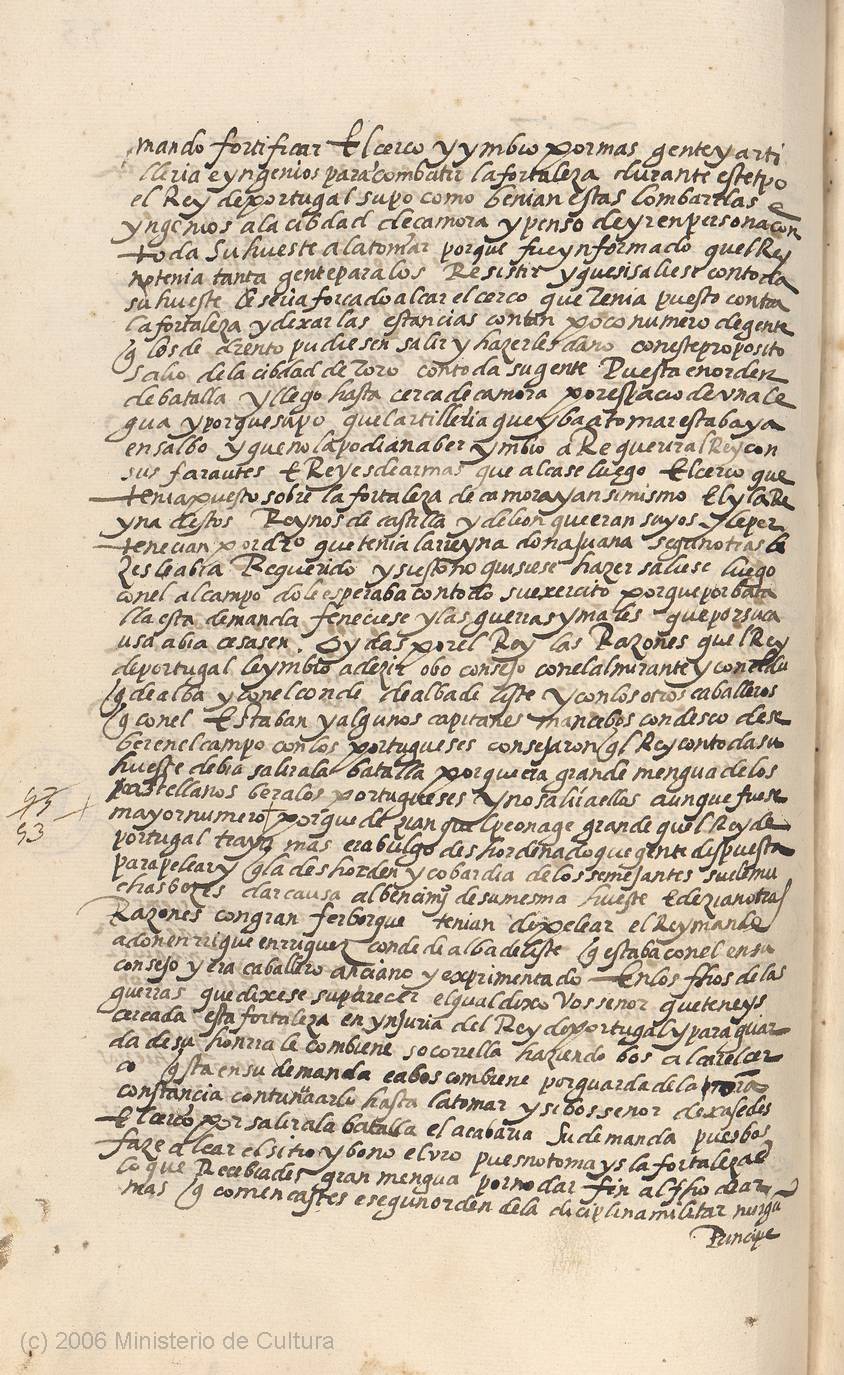 mando fortificar El cerco y ymbio por mas gente y arti
lleria e yngenios para combatir la fortaleza durante este tpo
el Rey de portugal supo como benian estas lombardas e
yngenios a la cibdad de camora y penso de yr en persona con
toda Su hueste a la tomar porque fue ynformado quel Rey
no tenia tanta gente para los Resistir y que si saliese con toda
su hueste le seria forcado alcar el cerco que Tenia puesto contra
la fortaleza y dexar las estancias con tan poco numero de gente
q los de dentro pudiesen salir y hazerles dano con este proposito
salio de la cibdad de Toro con toda su gente Puesta en orden
de batalla y llego hasta cerca de camora por espacio de vna le
gua y porque sapo quel artilleria que yba a tomar estaba ya
en salbo y que no la podian aber ymbio a Requerir al Rey con
sus farautes E Reyes de armas que alcase luego El cerco que
tenia puesto sobre la fortaleza de camora y ansimismo El y la Re
yna destos Reynos de castilla y de leon que eran suyos y le per
tenecian por dro que tenia la rreyna dona Juana segun otras be
zes le abia Requerido y si esto no quisiese hazer saliese luego
con el al campo do le esperaba con todo su exercito porque por bata
lla esta demanda feneciese y las guerras y males que por su ca
usa abia cesasen. Oydas por el Rey las Razones quel Rey
de portugal le ymbio a dezir obo consejo con el almirante y con el du
q de alba y con el conde de alba de liste y con los otros caballeros
q con el Estaban y algunos capitanes mancebos con deseo de se
ber en el campo con los portugueses consejaron ql Rey con toda su
hueste debia salir a la batalla porque era grande mengua de los
castellanos ber a los portugueses y no salir a ellos aunque fuese
mayor numero + porque dezian quel peonage grande quel Rey de
portugal traya mas era bulgo deshordenado que gente dispuesta
para pelear y q la deshorden y cobardia de los semejantes suele mu
chas bezes dar causa al bencimj de su mesma hueste E dezian otras
Razones con gran ferbor que tenian de pelear el Rey mando
a don enrrique enrriquez conde de alba de liste q estaba con el en su
consejo y era caballero anciano y exprimentado En los fhos de las
guerras que dixese su parecer el qual dixo Vos senor que teneys
cercada esta fortaleza en ynjuria del Rey de portugal y para guar
da de su honrra le combiene socorrella haziendo bos alcar el cer
co q sta en su demanda e a bos combiene por guarda de la
constancia continuarlo hasta la tomar y si bos senor dexasedes
El cerco por salir a la batalla el acabaria Su demanda pues bos
faze alcar el sitio y bono el vro pues no tomays la fortaleza e
lo que Recebiades gran mengua por no dar fin al fho de ar
mas q comencastes e segun orden de la diciplina militar nungu
Principe
93
93
(c) 2006 Ministerio de Cultura